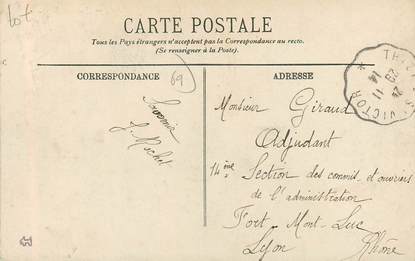 lot
CARTE POSTALE
Tous les Pays étrangers n'acceptent pas la Correspondance au recto.
(Se renseigner à la Poste).
CORRESPONDANCE
69
ADRESSE
Souvenir
Monsieur Giraud
Adjudant
14ème Section des commis et ouvriers
de l'administration
Fort Mont-Luc
Lyon Rhône
VICTOR
24
29 11
14